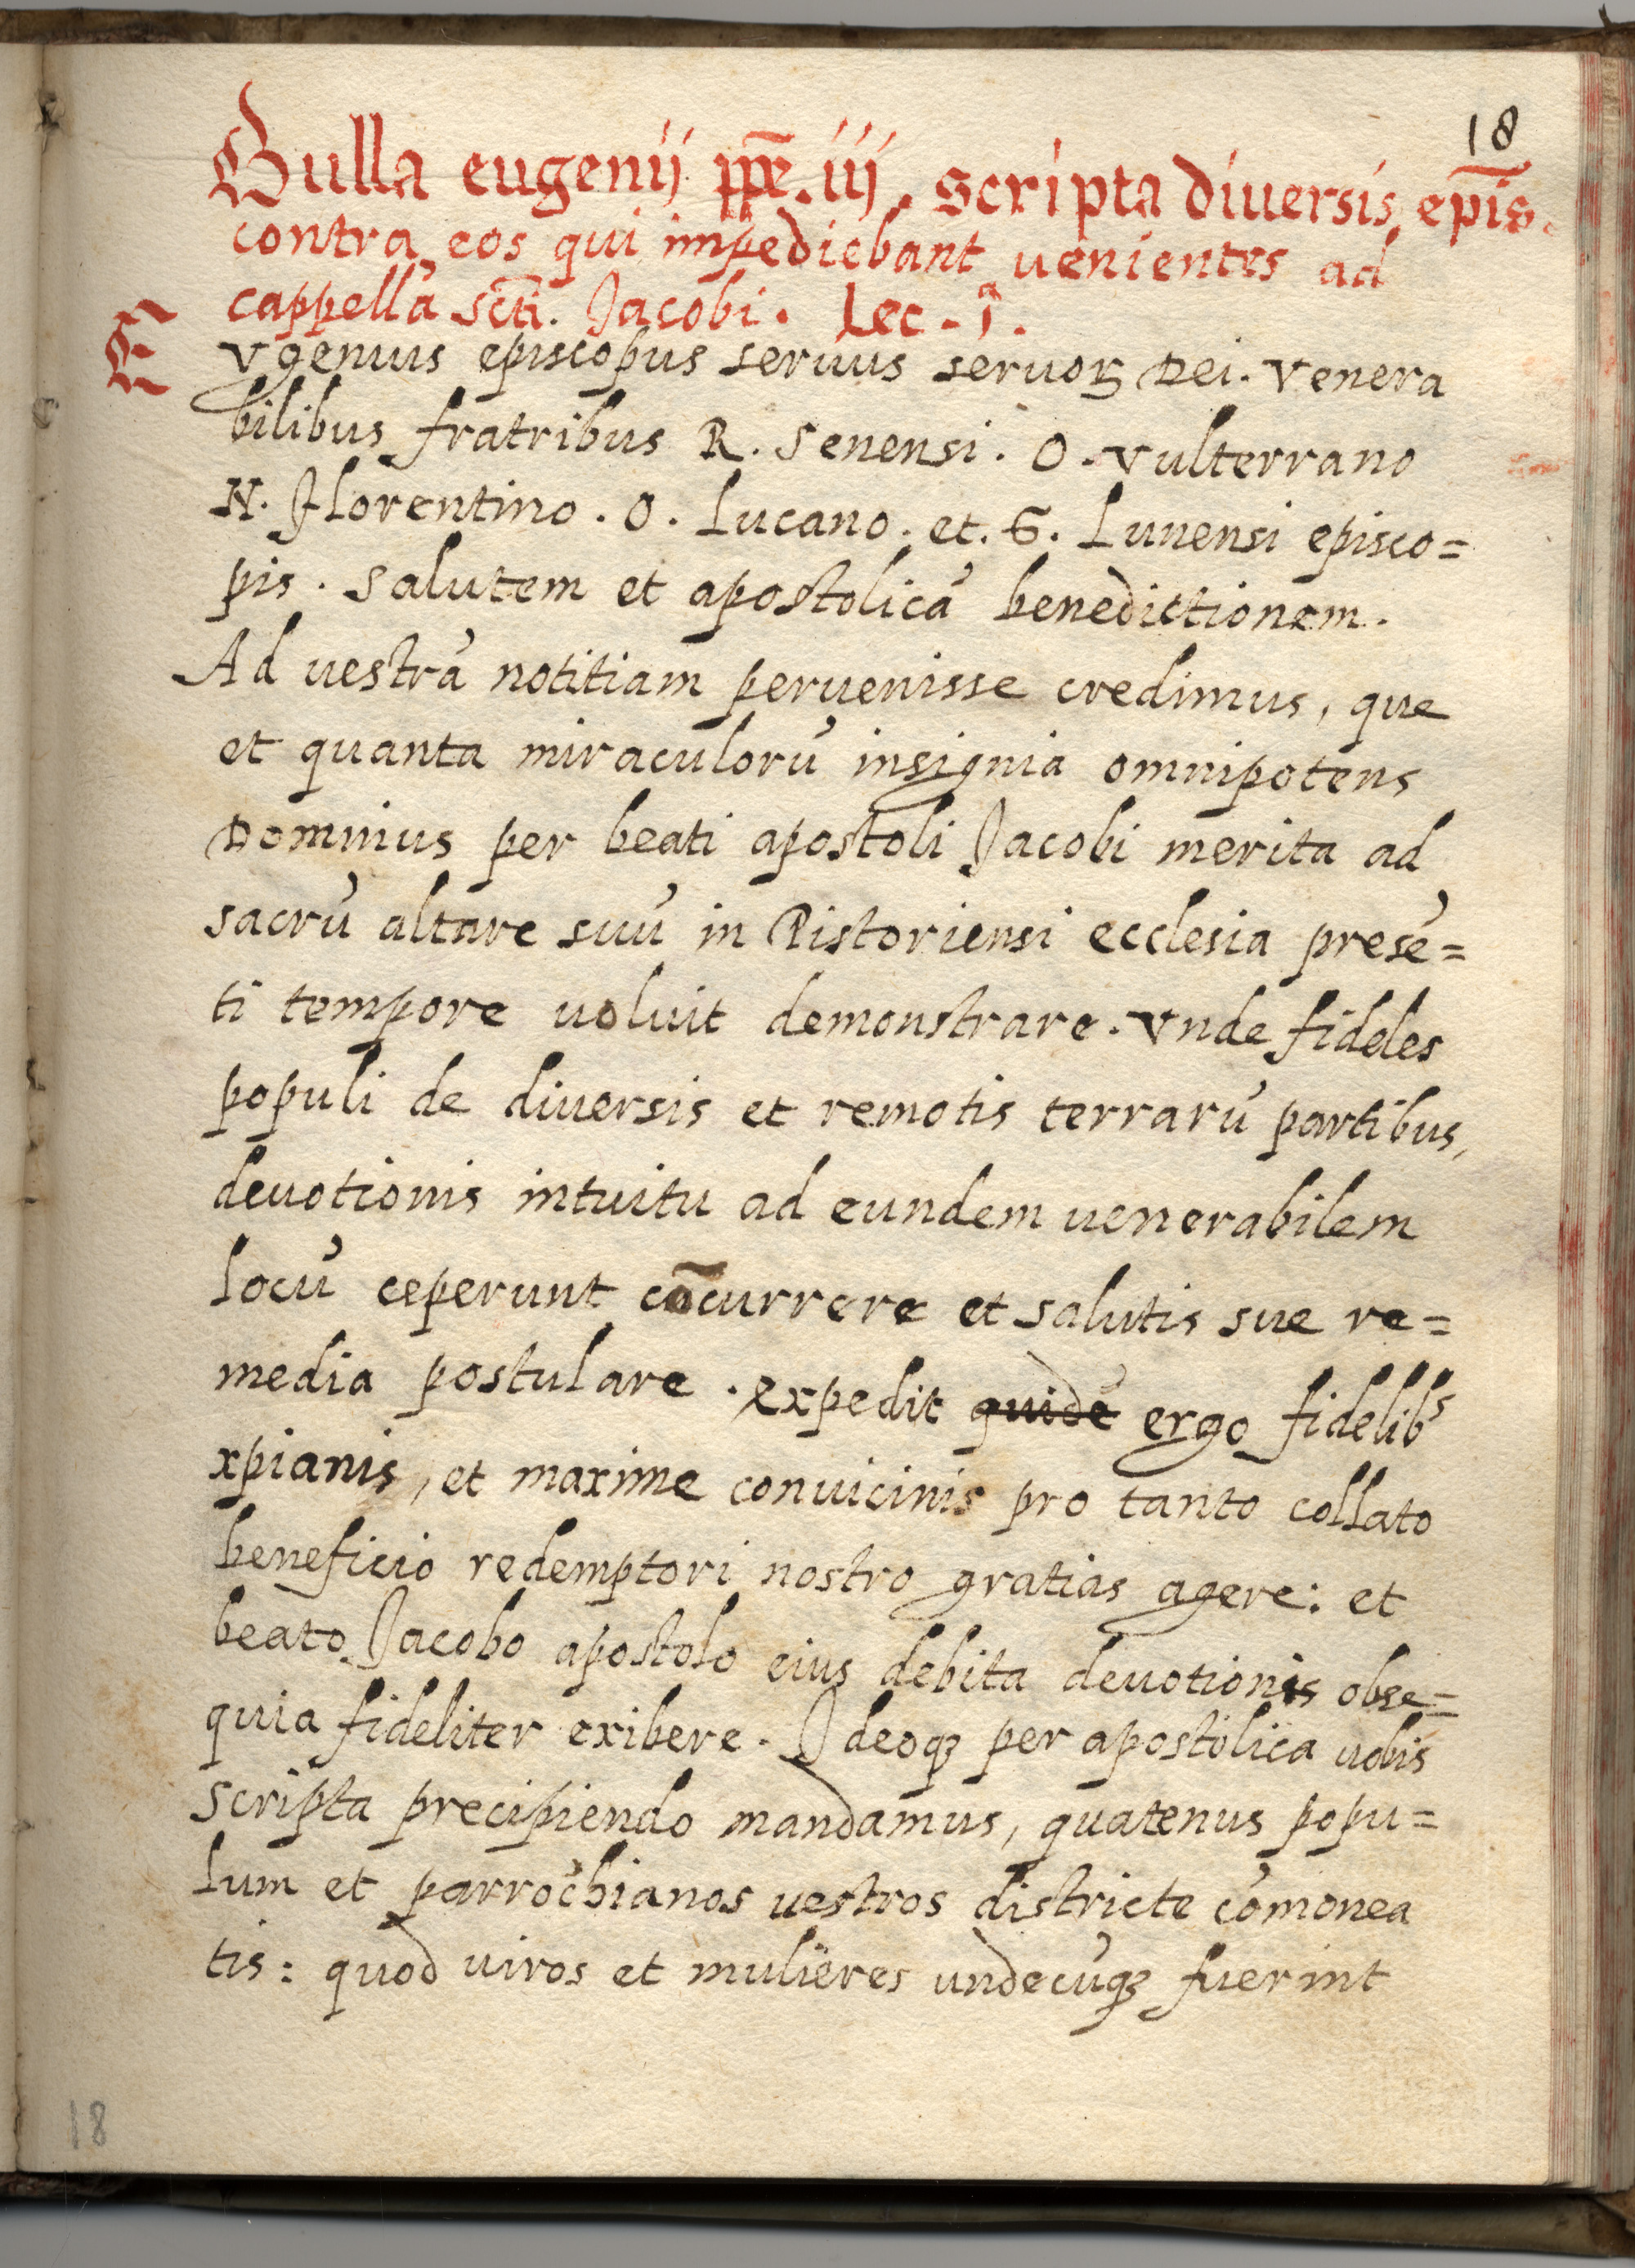 18
Bulla eugenij pp̄e. iij. scripta diuersis ep̄is.
contra eos qui impediebant uenientes ad
cappellā sc̄ti. Jacobi. Lec. jª.
E Vgenius episcopus seruus seruoꝝ Dei. Venera
bilibus fratribus R. Senensi. O. Vulterrano
N. Florentino. O. Lucano. et. G. Lunensi episco=
pis. Salutem et apostolicā benedictionem.
Ad uestrā notitiam peruenisse credimus, que
et quanta miraculorū insignia omnipotens
Dominus per beati apostoli Jacobi merita ad
sacrū altare suū in Pistoriensi ecclesia presē=
ti tempore uoluit demonstrare. Vnde fideles
populi de diuersis et remotis terrarū partibus,
deuotionis intuitu ad eundem uenerabilem
locū ceperunt cōcurrere et salutis sue re=
media postulare. Expedit quidē ergo fidelibˢ
xpianis, et maxime conuicinis pro tanto collato
beneficio redemptori nostro gratias agere: et
beato Jacobo apostolo eius debita deuotionis obse=
quia fideliter exibere. Ideoqꝫ per apostolica uobis
scripta precipiendo mandamus, quatenus popu=
lum et parrochianos uestros districte cōmonea
tis: quod uiros et mulieres undecūqꝫ fuerint
18